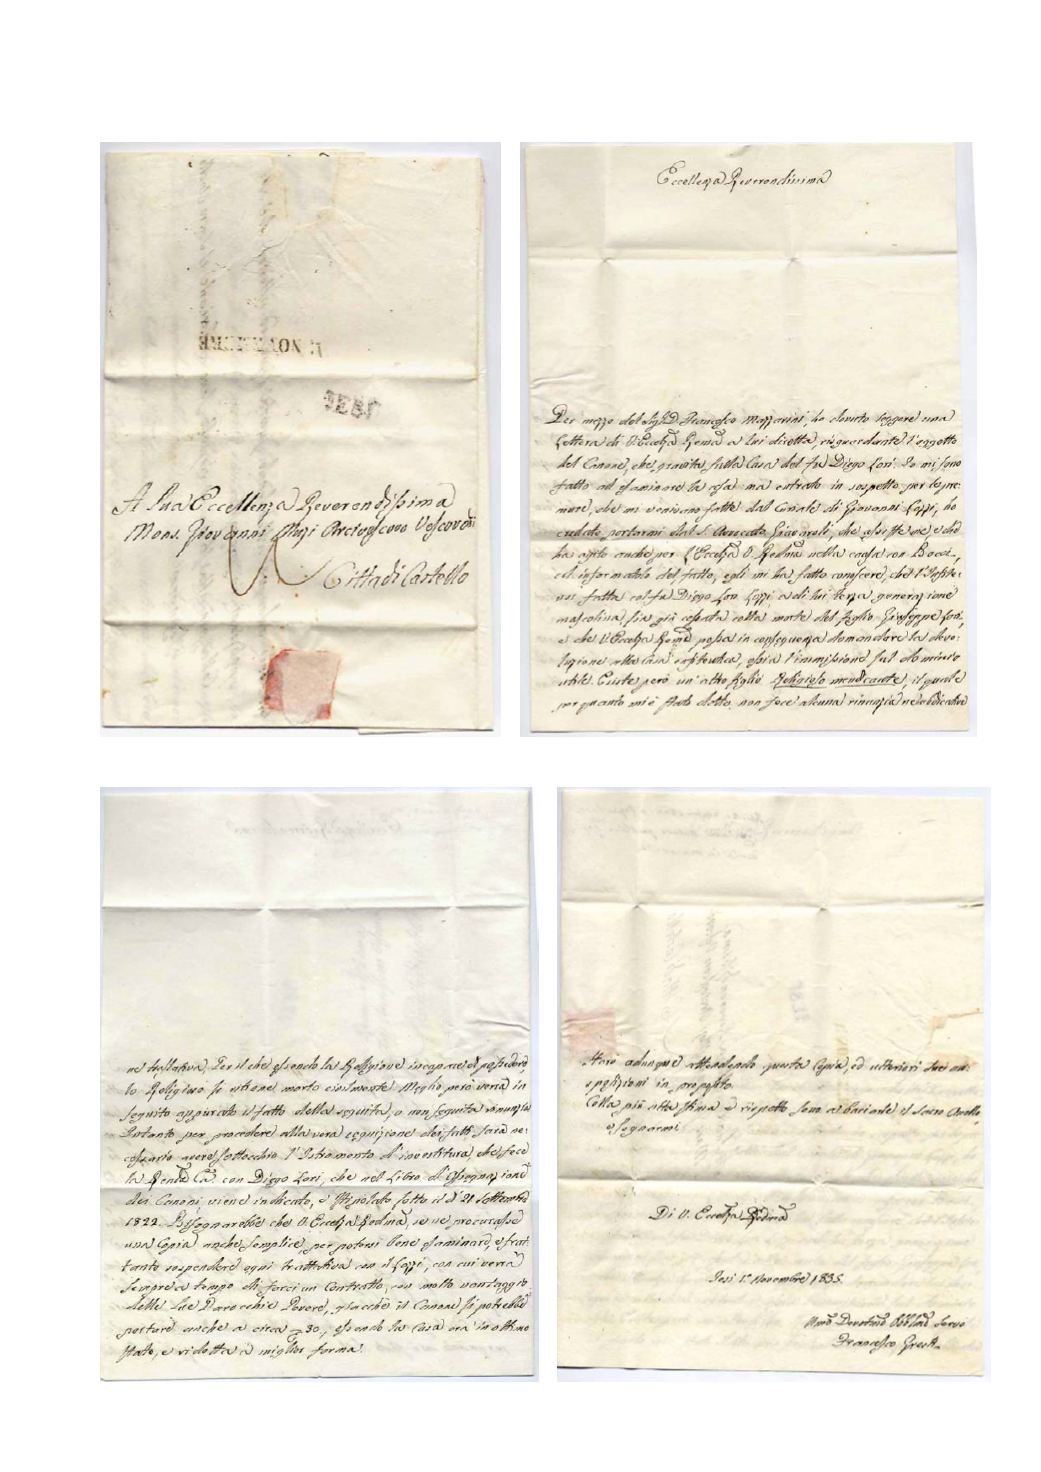 1. NOVEMBRE
JESI
A Sua Eccellenza Reverendissima
Mons. Giovanni Muzi Arcivescovo Vescovo di
Città di Castello
Eccellenza Reverendissima
Per mezzo del Sig. D. Francesco Mazzarini, ho dovuto leggere una
Lettera di V. Eccełza Rema a lui diretta riguardante l'oggetto
del Canone, che gravita sulla Casa del fu Diego Lori. Io mi sono
fatto ad esaminare la cosa ma entrato in sospetto per le pre-
mure, che mi venivano fatte dal Curiale di Giovanni Lazzi, ho
creduto portarmi dal S. Avvocato che assiste me e che
ha agito anche per l'Eccełza V. Redma nella causa con
ed informatolo del fatto, egli mi ha fatto conoscere, che l'Enfiteu-
si fatta col fu Diego Lori Lazzi, e di lui terza generazione
mascolina, sia già cessata colla morte del figlio Giuseppe Lori,
e che l'Eccełza Rema possa in conseguenza domandare la devo-
luzione alla casa enfiteutica, ossia l'immissione sul dominio
utile. Esiste però un'altro figlio Religioso mendicante, il quale
per quanto mi è stato detto, non fece alcuna rinunzia nè abdicativa
nè traslativa. Per il che essendo la Religione incapace di possedere,
lo Religioso si ritiene morto civilmente. Meglio però verrà in
seguito appurato il fatto della seguita, o non seguita rinunzia
Intanto per procedere alla vera cognizione dei fatti sarà ne-
cessario avere sott'occhio l'Istromento d'investitura che fece
la Renda Ca. con Diego Lori, che nel Libro d'Assegnazione
dei Canoni viene indicato, e stipolato sotto il dì 21 Settembre
1822. Bisognarebbe che V. Eccełza Redma, se ne procurasse
una Copia anche semplice, per potersi bene esaminare, e frat
tanto sospendere ogni trattativa con il Lazzi, con cui verrà
sempre a tempo di farci un Contratto, con molto vantaggio
delle Sue Parocchie Povere, giacchè il Canone si potrebbe
portare anche a circa 30, essendo la Casa ora in ottimo
stato, e ridotta a miglior forma.
Starò adunque attendendo questa Copia, ed ulteriori Sue
in proposito.
Colla più alta stima e rispetto sono a baciarle il Sacro Anello
e segnarmi
Di V. Eccełza Redma
Jesi 1.° Novembre 1835.
Umo Devotmo Obblmo Servo
Francesco